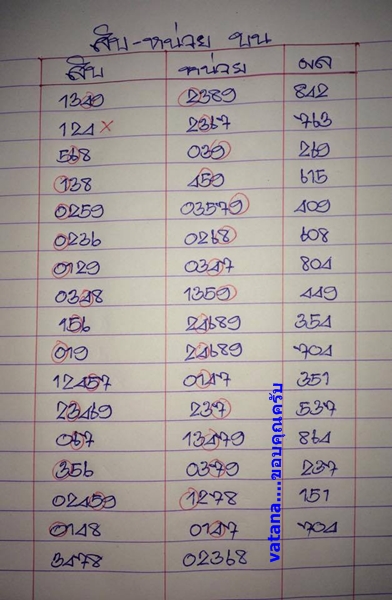 สิบ-หน่วย บน
สิบ หน่วย ผล
1349 2389 842
124× 2367 763
568 039 269
138 459 615
0259 03579 409
0236 0268 608
0129 0347 804
0348 1359 449
156 24689 354
019 24689 704
12457 0147 351
23469 237 537
067 13479 864
356 0379 237
02459 1278 151
0148 0147 704
3478 02368
vatana....ขอบคุณครับ